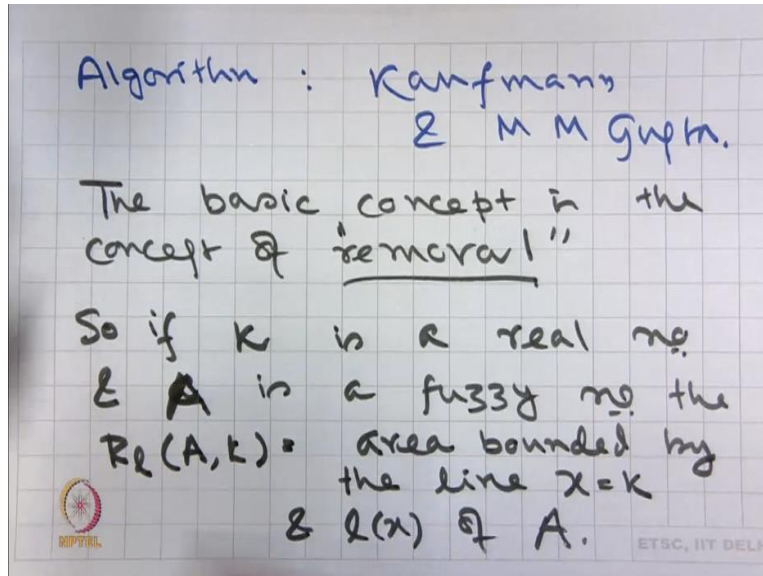 Algorithm : Kaufmann
& M M Gupta.
The basic concept is the
concept of "removal"
So if k is a real no
& A is a fuzzy no the
Rl (A, k) = area bounded by
the line x = k
& l(x) of A.
NPTEL
ETSC, IIT DELH